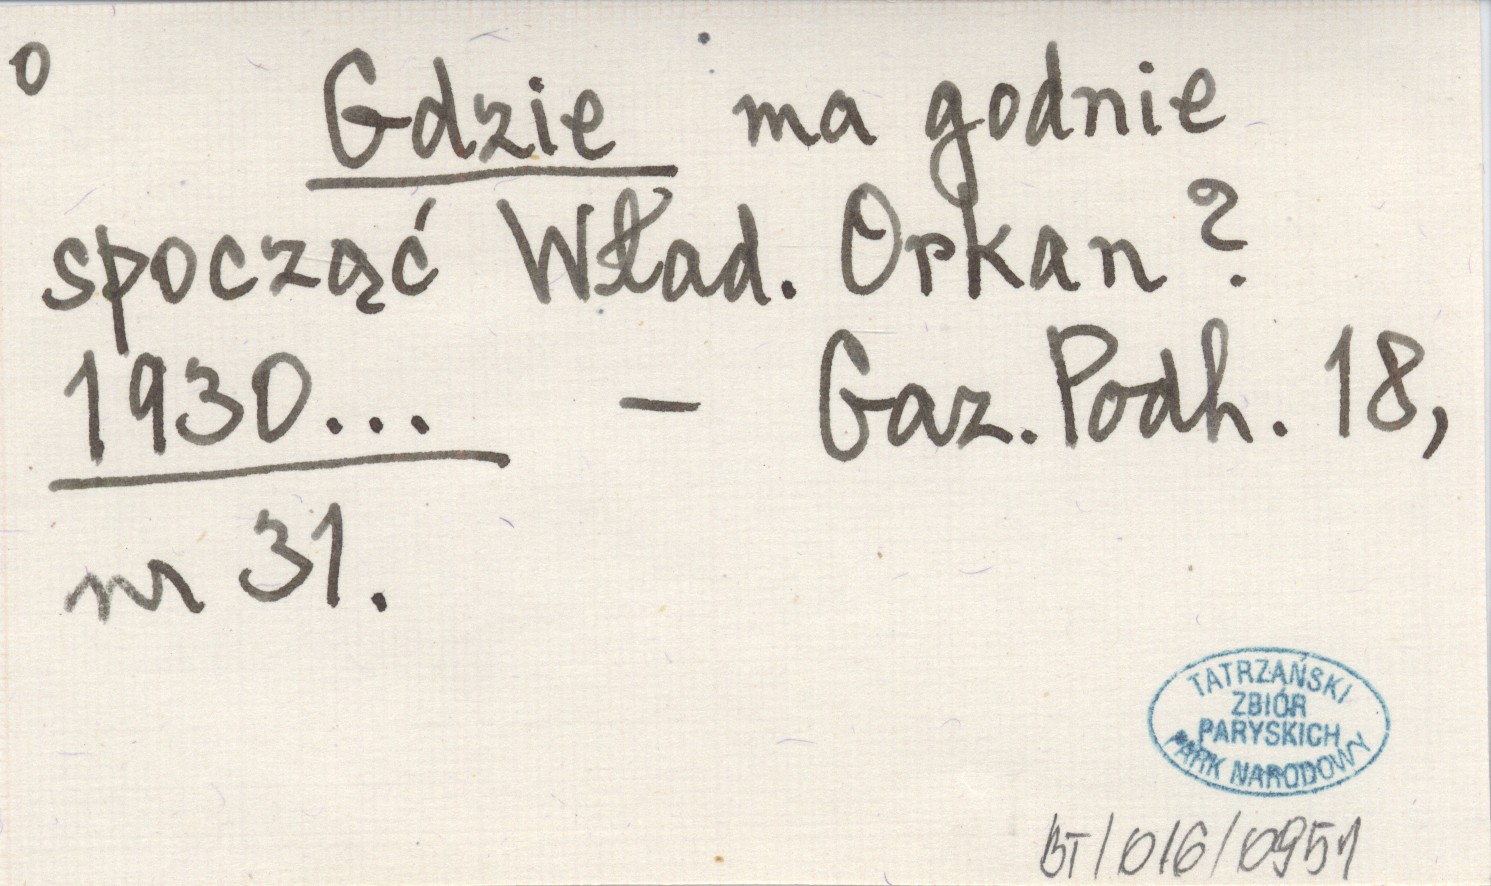 o
Gdzie ma godnie
spocząć Wład. Orkan?
1930... – Gaz. Podh. 18,
nr 31.
TATRZAŃSKI
ZBIÓR
PARYSKICH
PARK NARODOWY
BT/016/0951